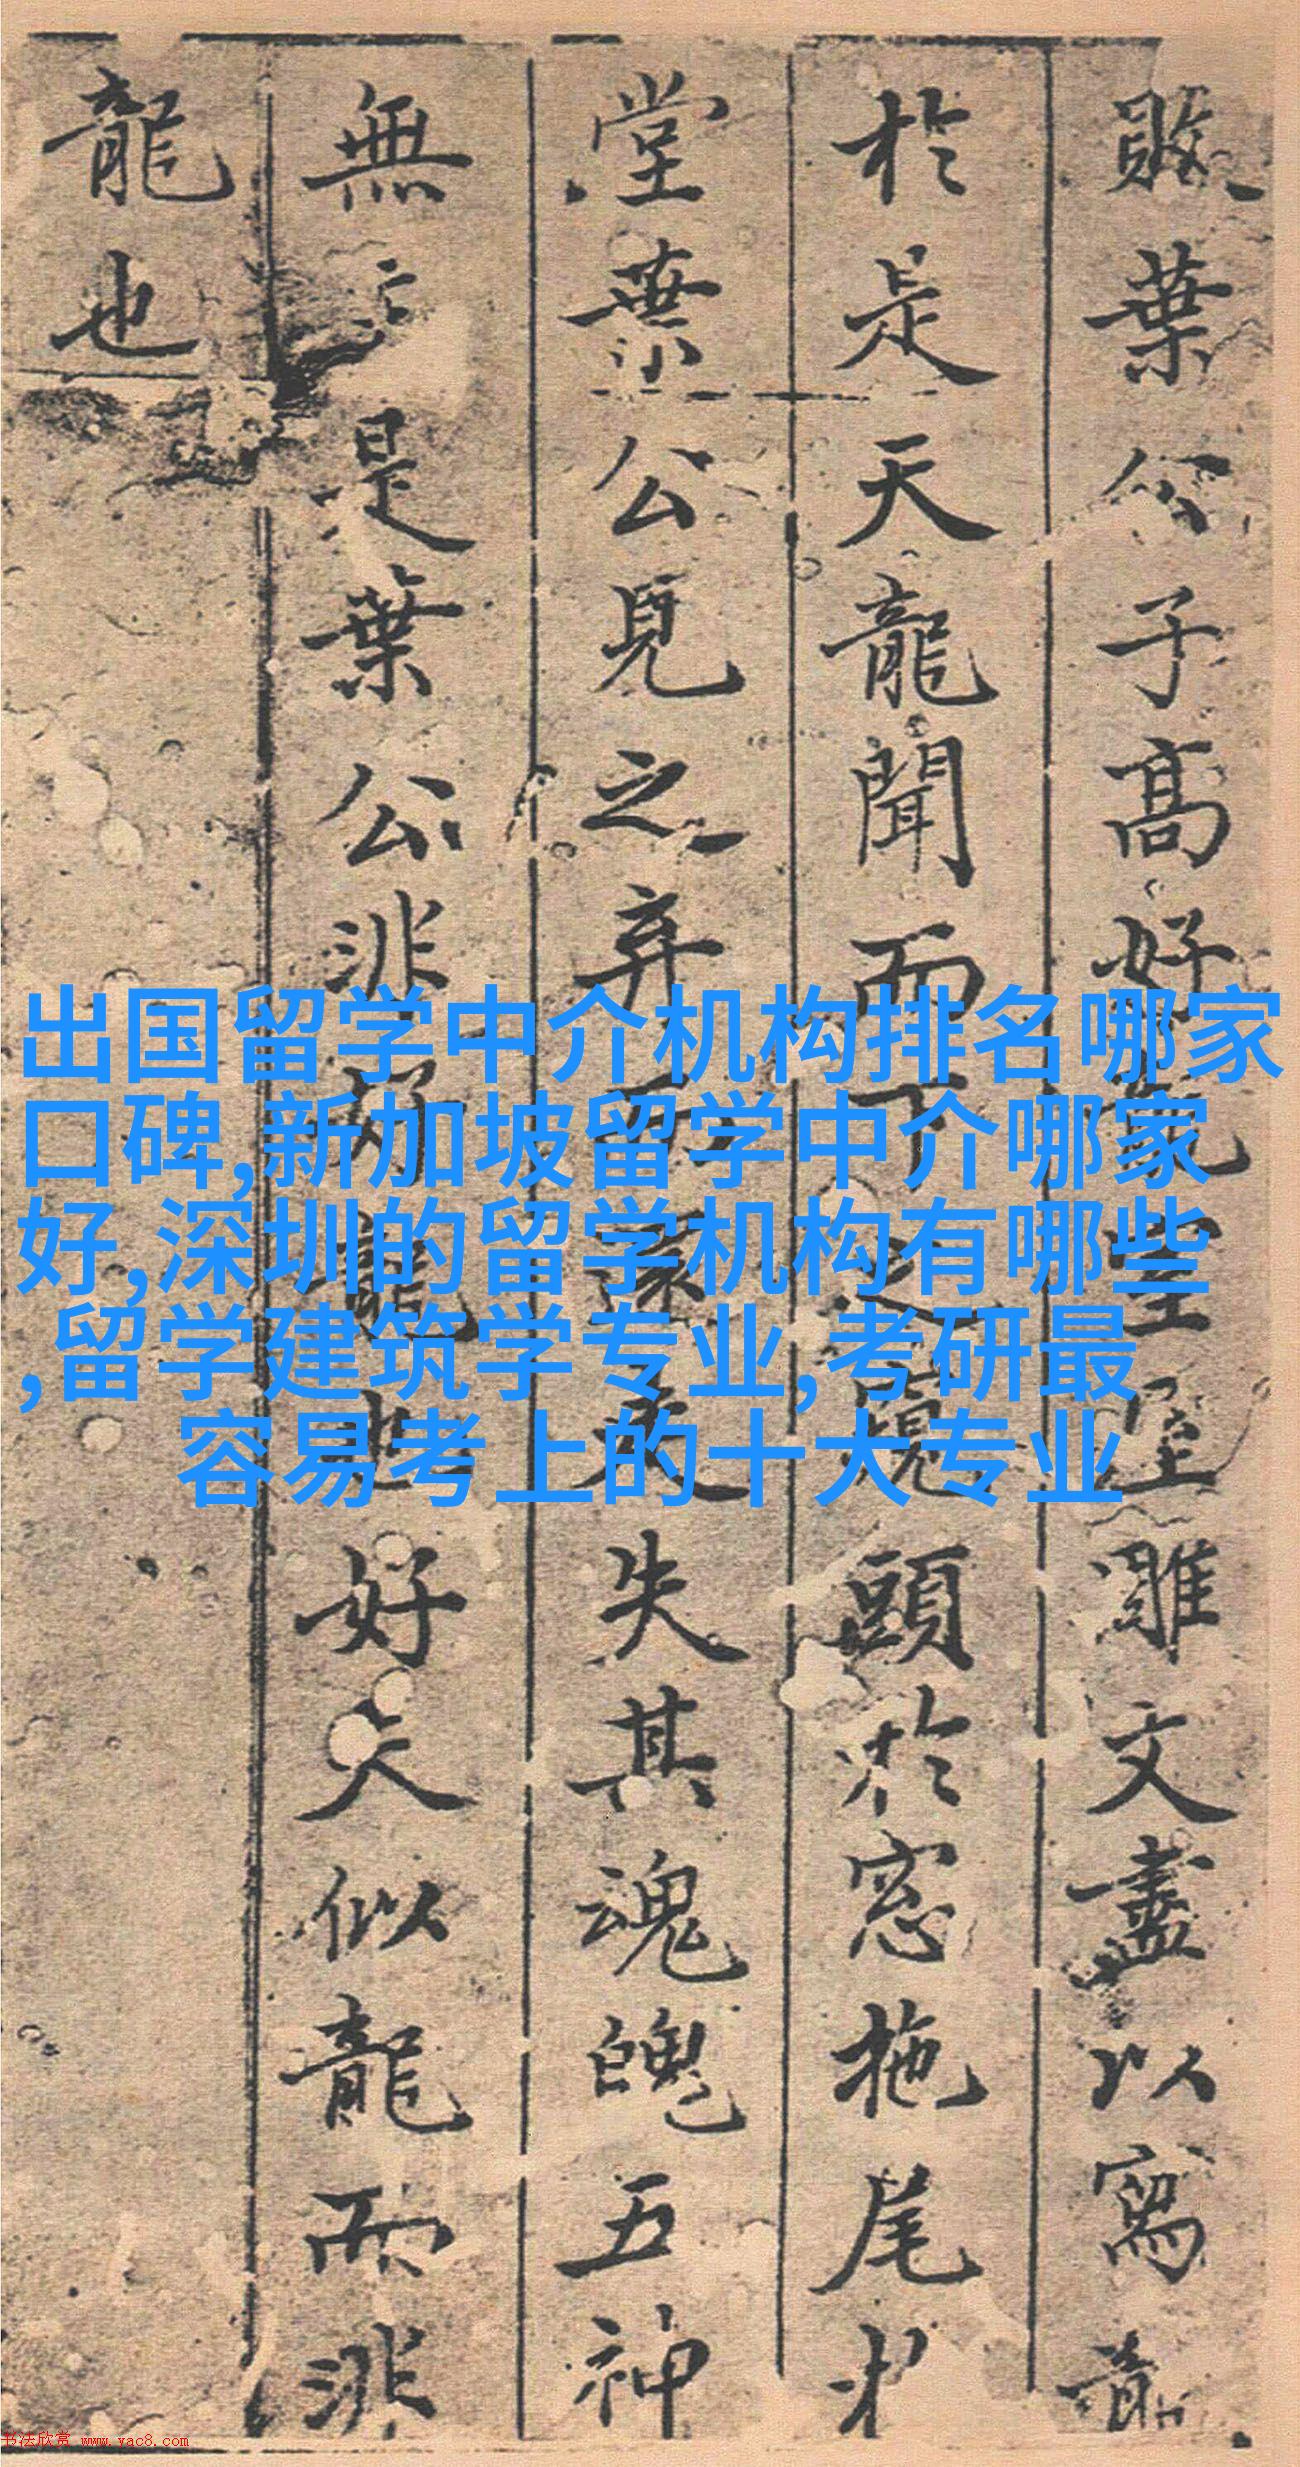 敗葉公子高好龍雕文盡以寫龍
於是天龍聞而下之窺頭於窓拖尾於
堂葉公見之弃而還走失其魂魄五神
無主是葉公非好龍也好夫似龍而非
龍也
出国留学中介机构排名哪家
口碑,新加坡留学中介哪家
好,深圳的留学机构有哪些
,留学建筑学专业,考研最
容易考上的十大专业
书法欣赏 www.yac8.com